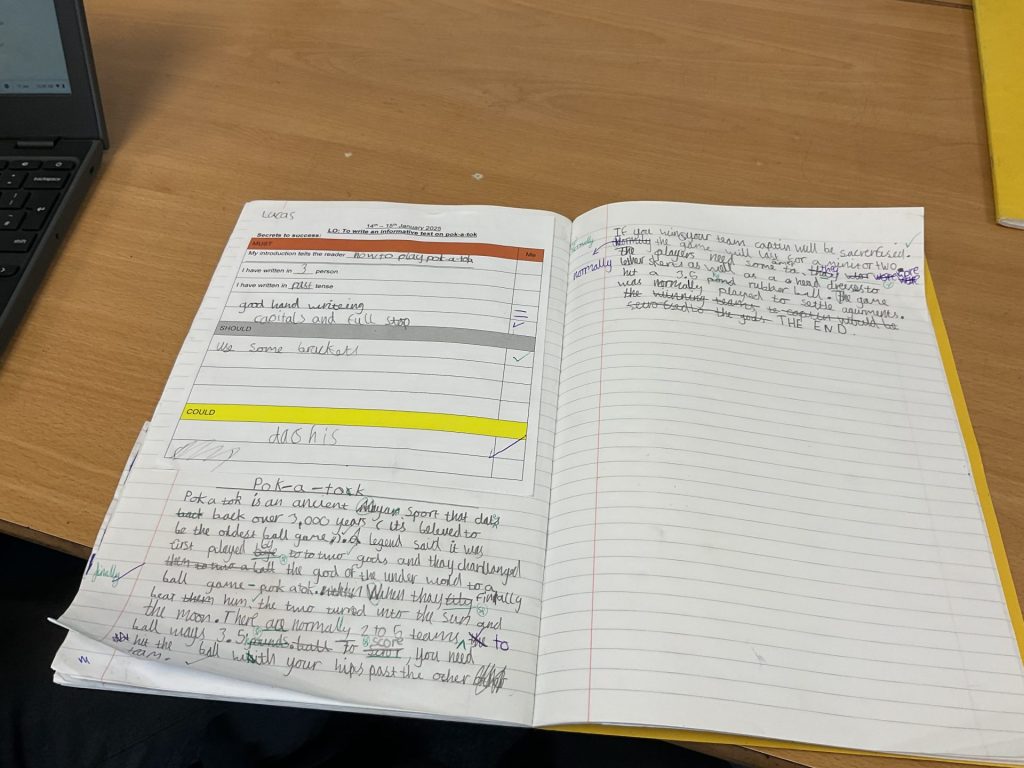 Lucas
14th – 15th January 2025
Secrets to success: LO: To write an informative text on pok-a-tok
MUST
Me
My introduction tells the reader how to play pok a tok
I have written in 3 person
I have written in past tense
good hand writeing
capitals and full stop
SHOULD
use some brackets
COULD
dashis
Pok-a-tok
Pok a tok is an ancient Mayan sport that dats
back back over 3,000 years ( its beleved to
be the oldest ball game). A legend said it was
first played by to two gods and thay charlanged
the god of the under word to a
ball game – pok a tok. When thay Finally
bear them him. the two turned into the sun and
the moon. There are normally 2 to 5 teams
ball ways 3.5 to score you need to
hit the ball with your hips past the other
team.
finally
If you win your team captin will be sacrafised.
Normally the game will last for a minit or two
The players need some
lether as well as a head dresses to
hit a 3.6 pond rubber ball. The game
was normally played to settle aguments.
the winning teams
THE END.
finally
normally
backspace
shift